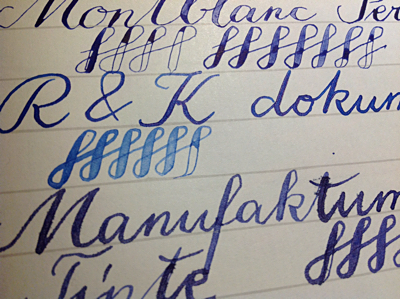 Montblanc Per
R & K dokum
Manufaktum
Tinte